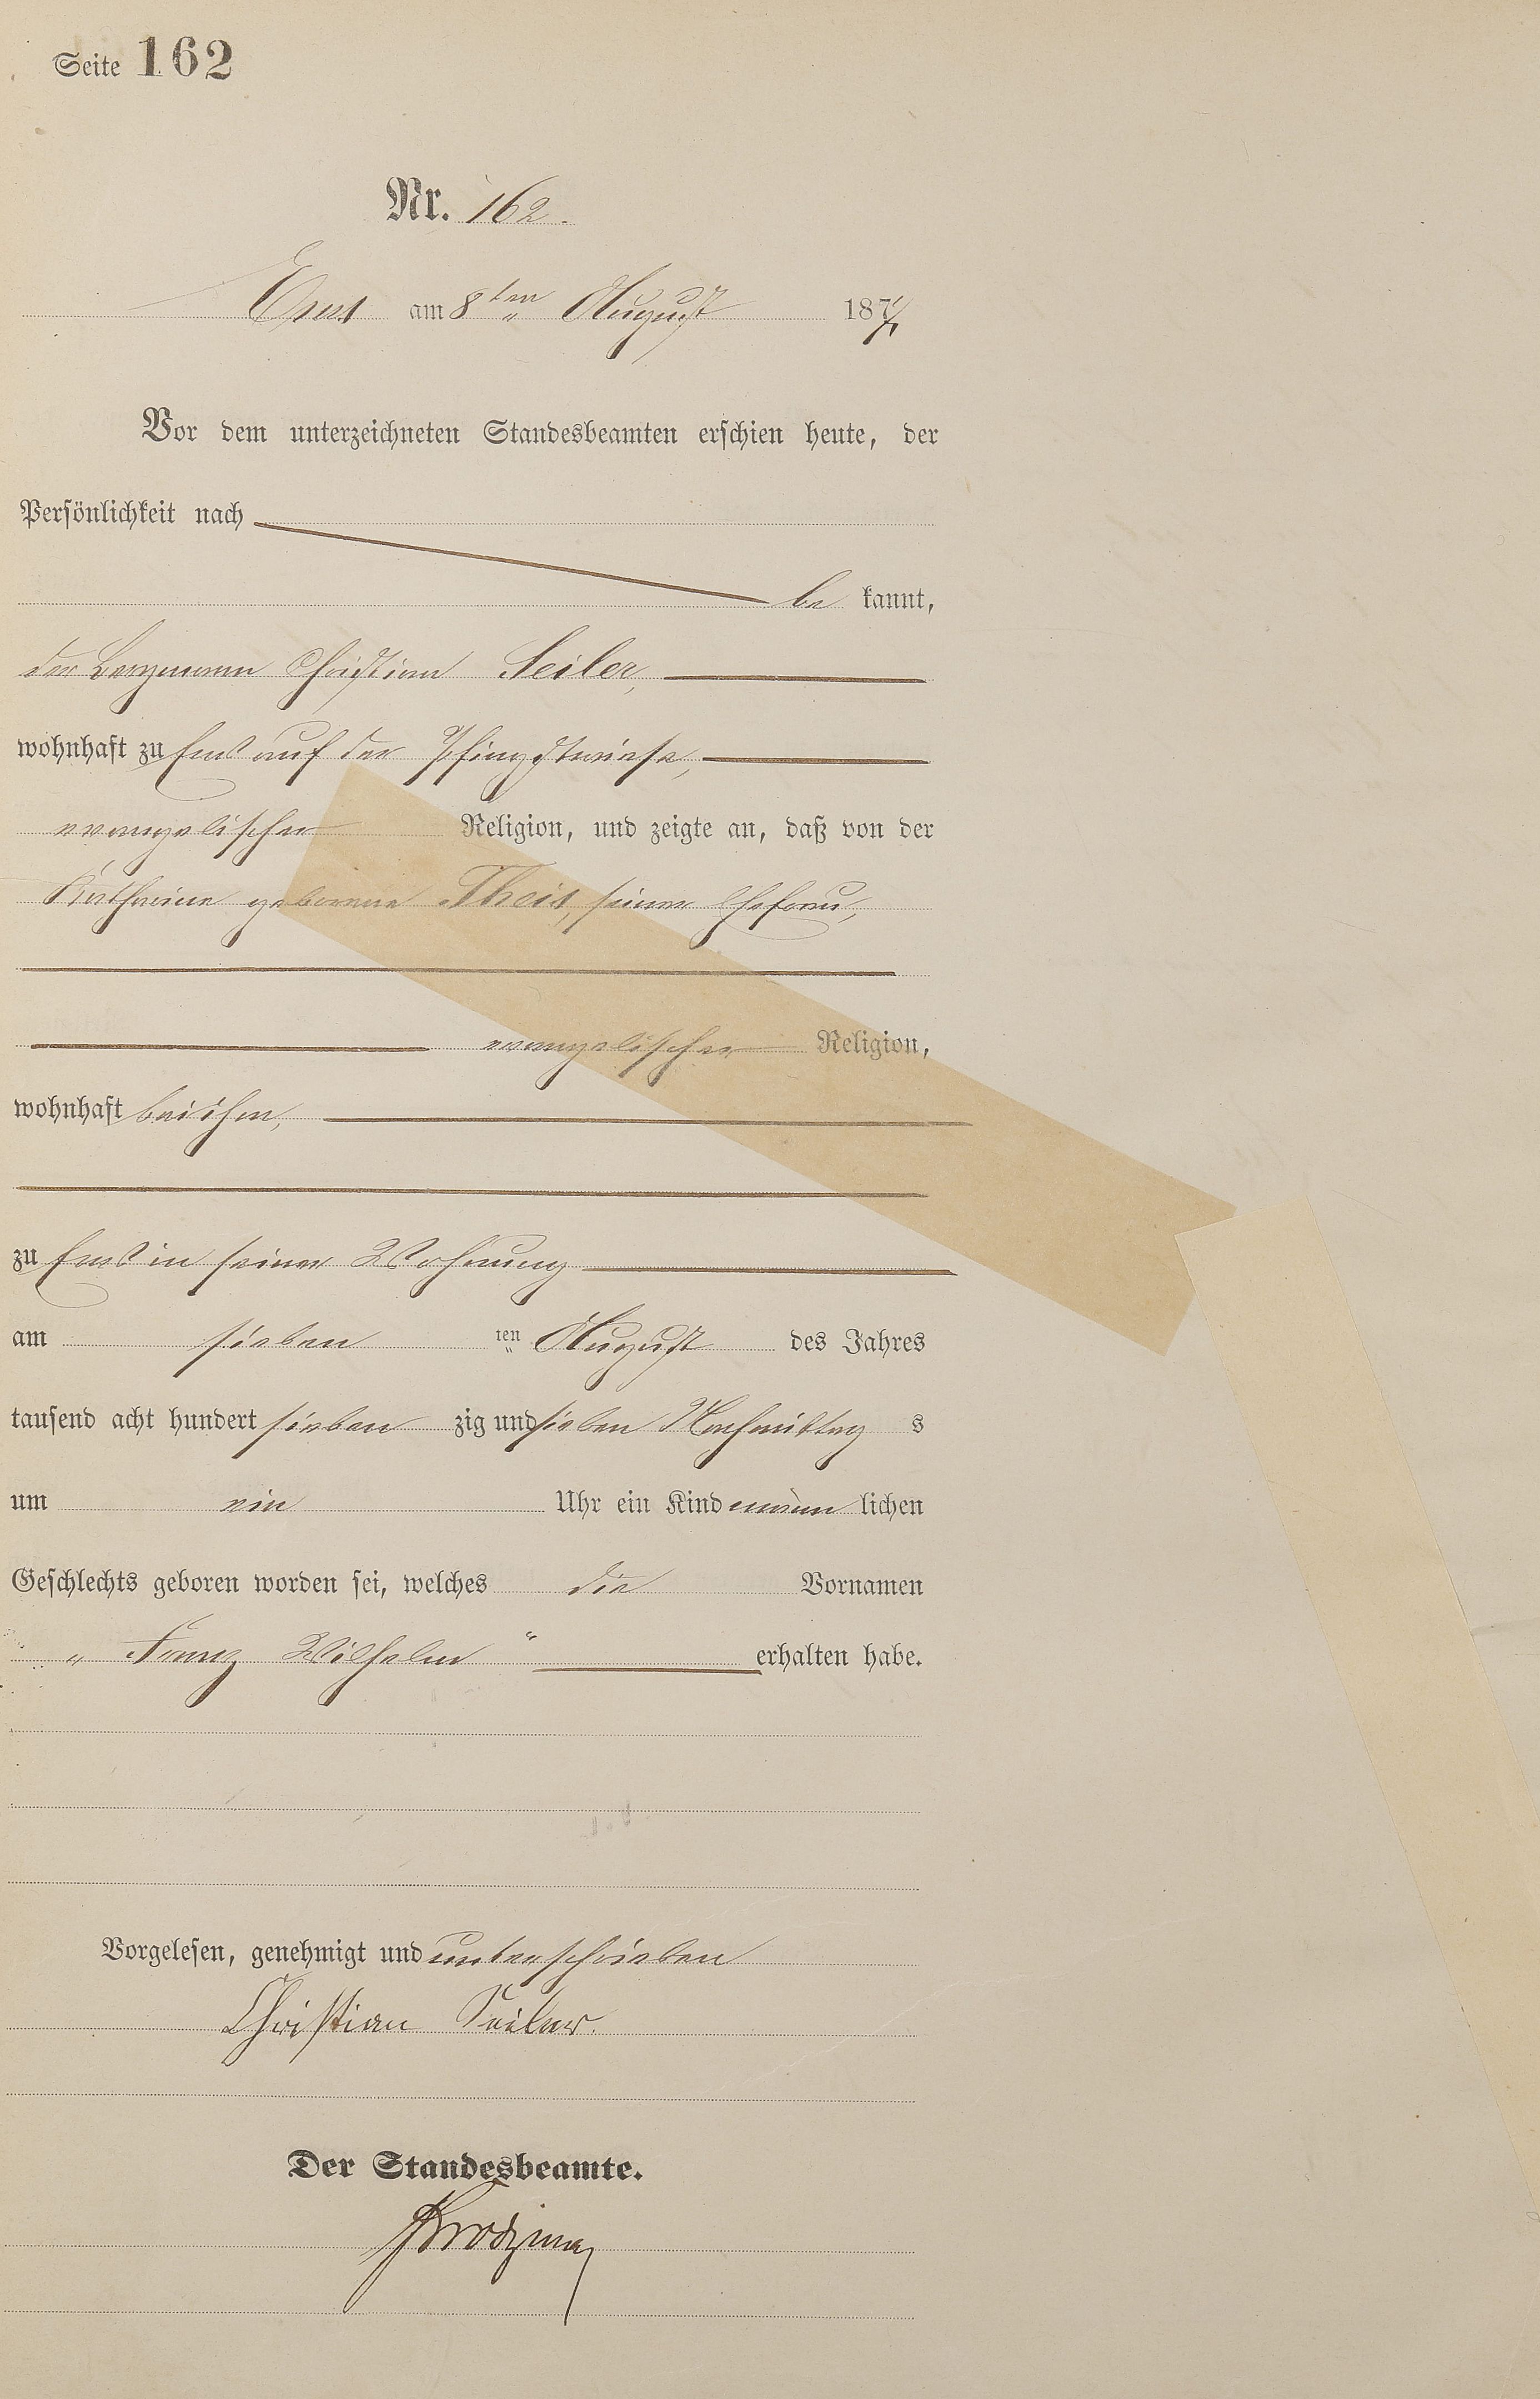 Seite 162
Nr. 162.
Ems am 8ten August 1877
Vor dem unterzeichneten Standesbeamten erschien heute, der
Persönlichkeit nach
be kannt,
der Bergmann Christian Seiler,
wohnhaft zu Ems auf der Pfingstwiese,
evangelischer Religion, und zeigte an, daß von der
Katharine geborene Theis, seiner Ehefrau,
evangelischer Religion,
wohnhaft bei ihm,
zu Ems in seiner Wohnung
am sieben ten August des Jahres
tausend acht hundert sieben zig und sieben Nachmittag s
um ein Uhr ein Kind männ lichen
Geschlechts geboren worden sei, welches die Vornamen
„ Franz Wilhelm “ erhalten habe.
Vorgelesen, genehmigt und unterschrieben
Christian Seiler.
Der Standesbeamte.